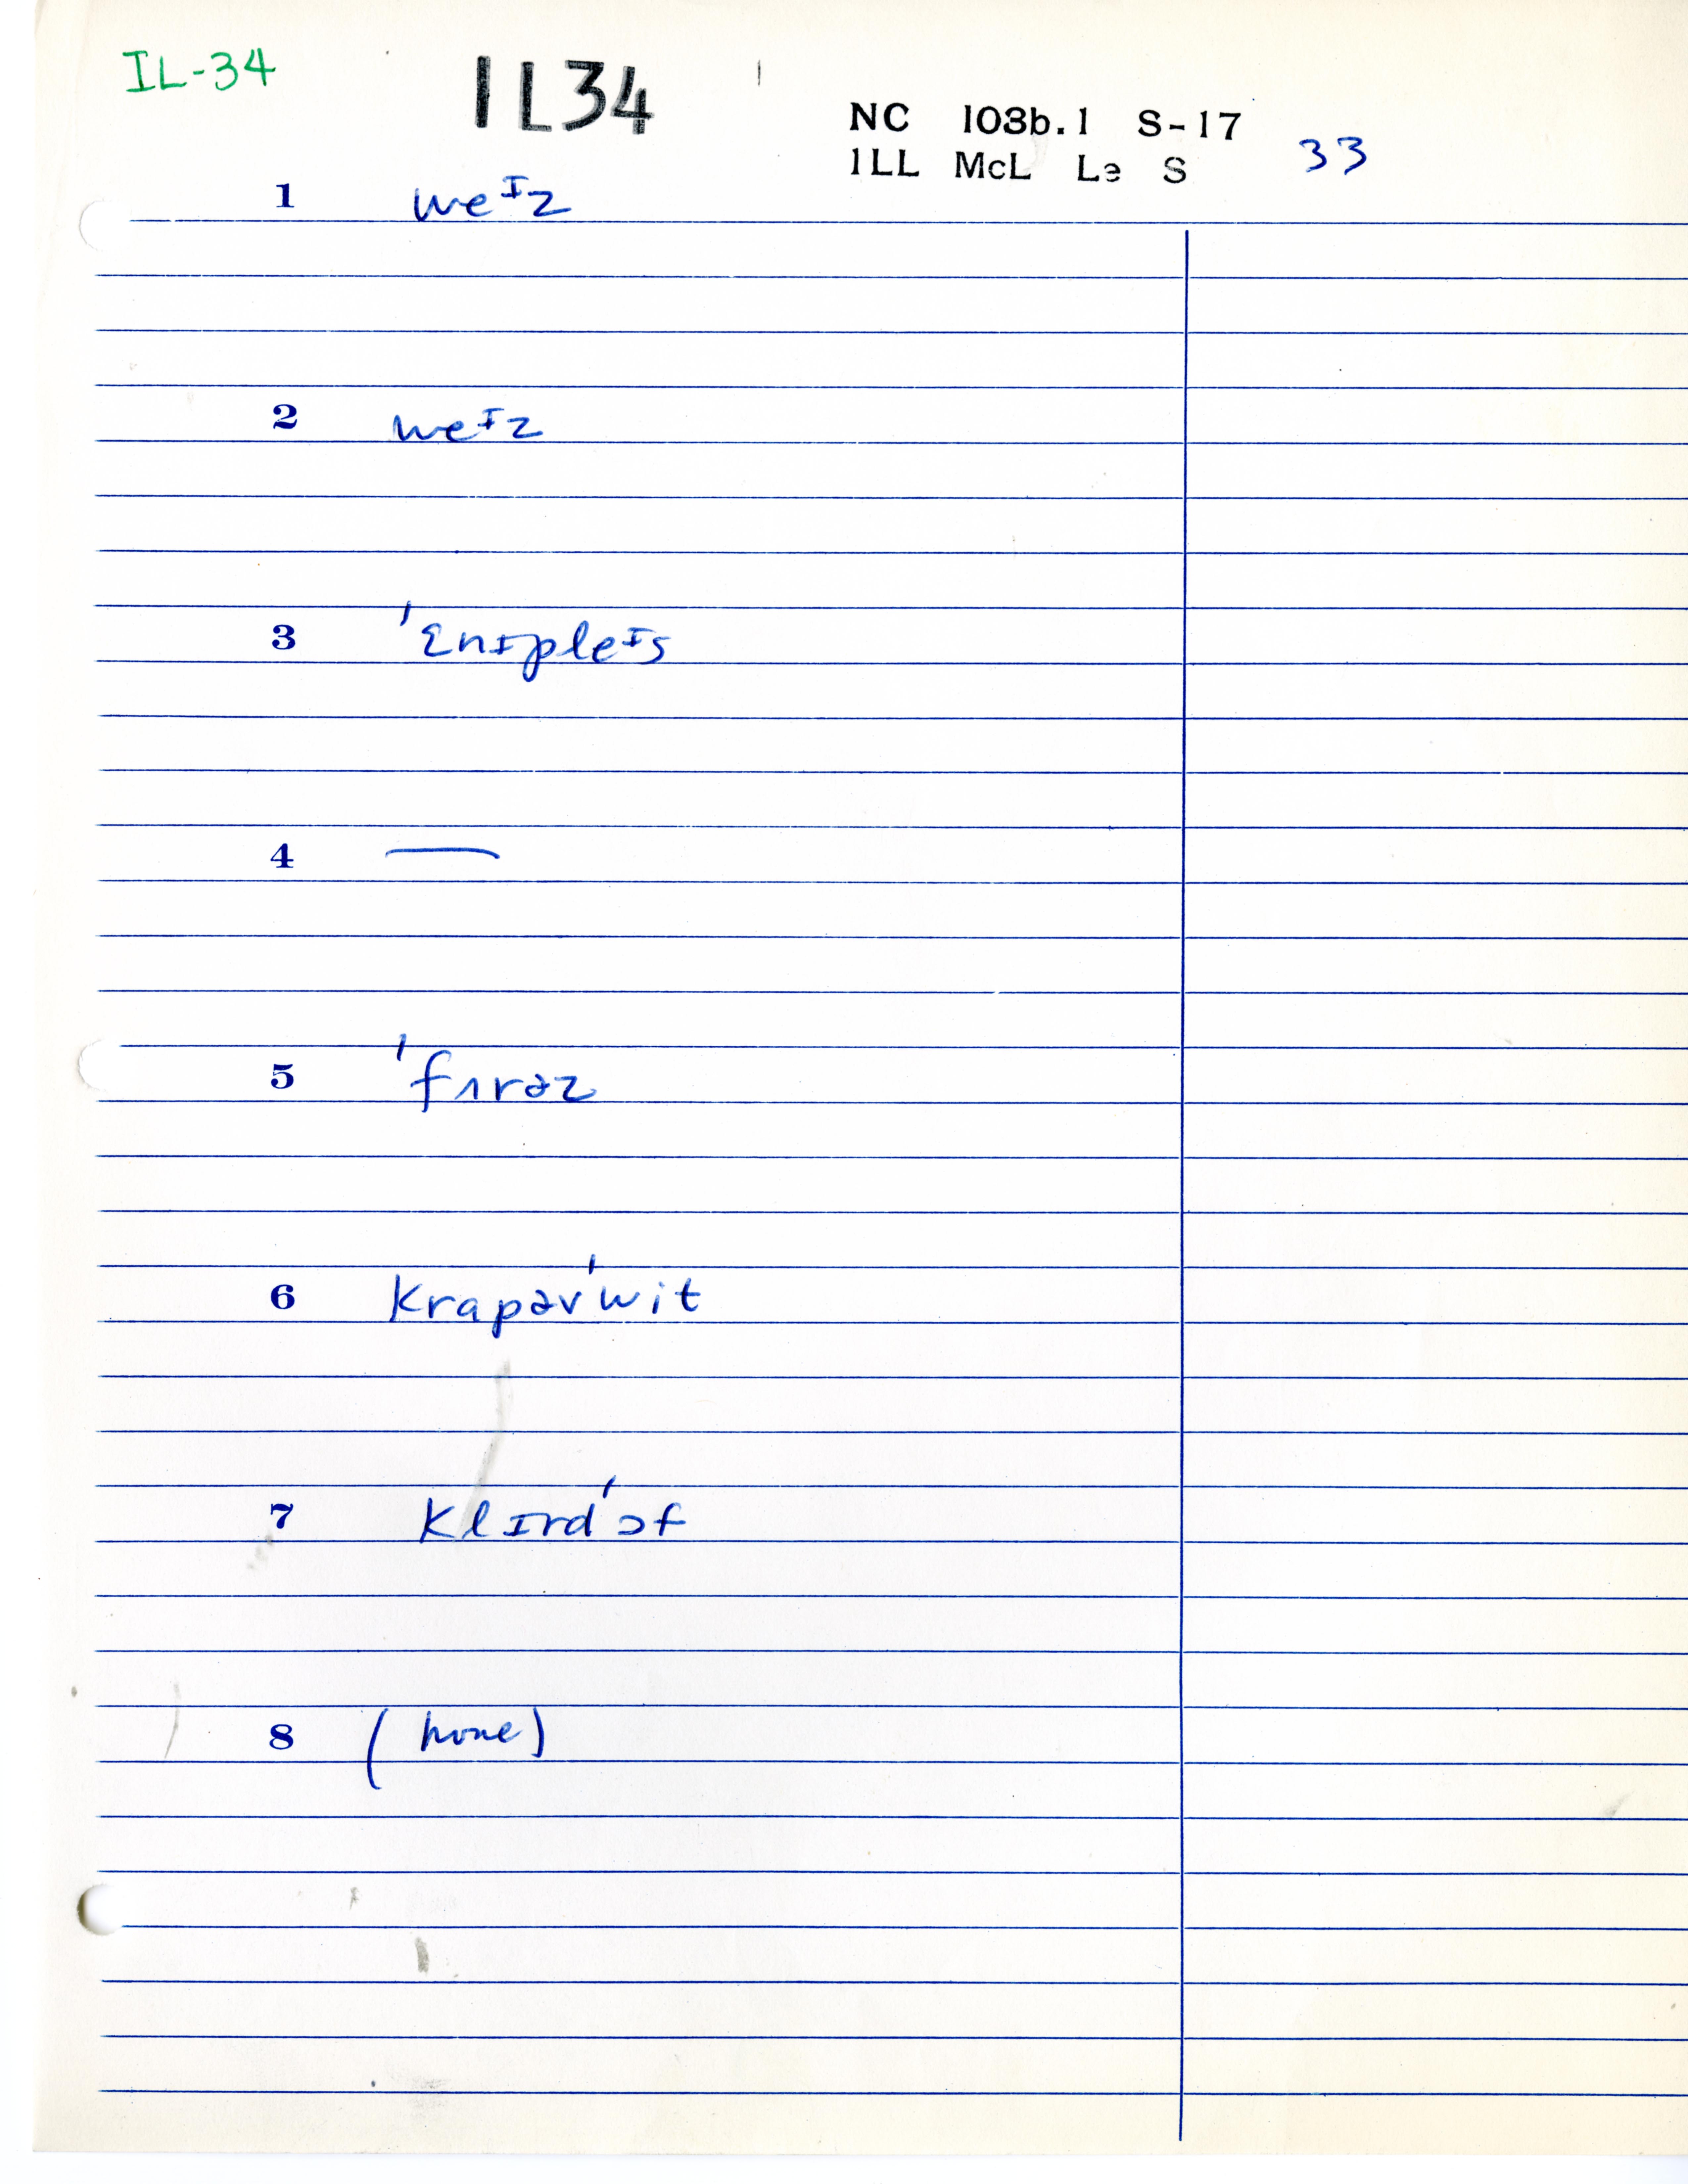 IL-34
IL34
NC 103b.1 S-17
ILL McL Le S
33
1 weᶦz
2 weᶦz
3 ˈɛnɪpleᶦs
4 —
5 ˈfɜrəz
6 krapəvˈwit
7 klɪrdˈɔf
8 (none)